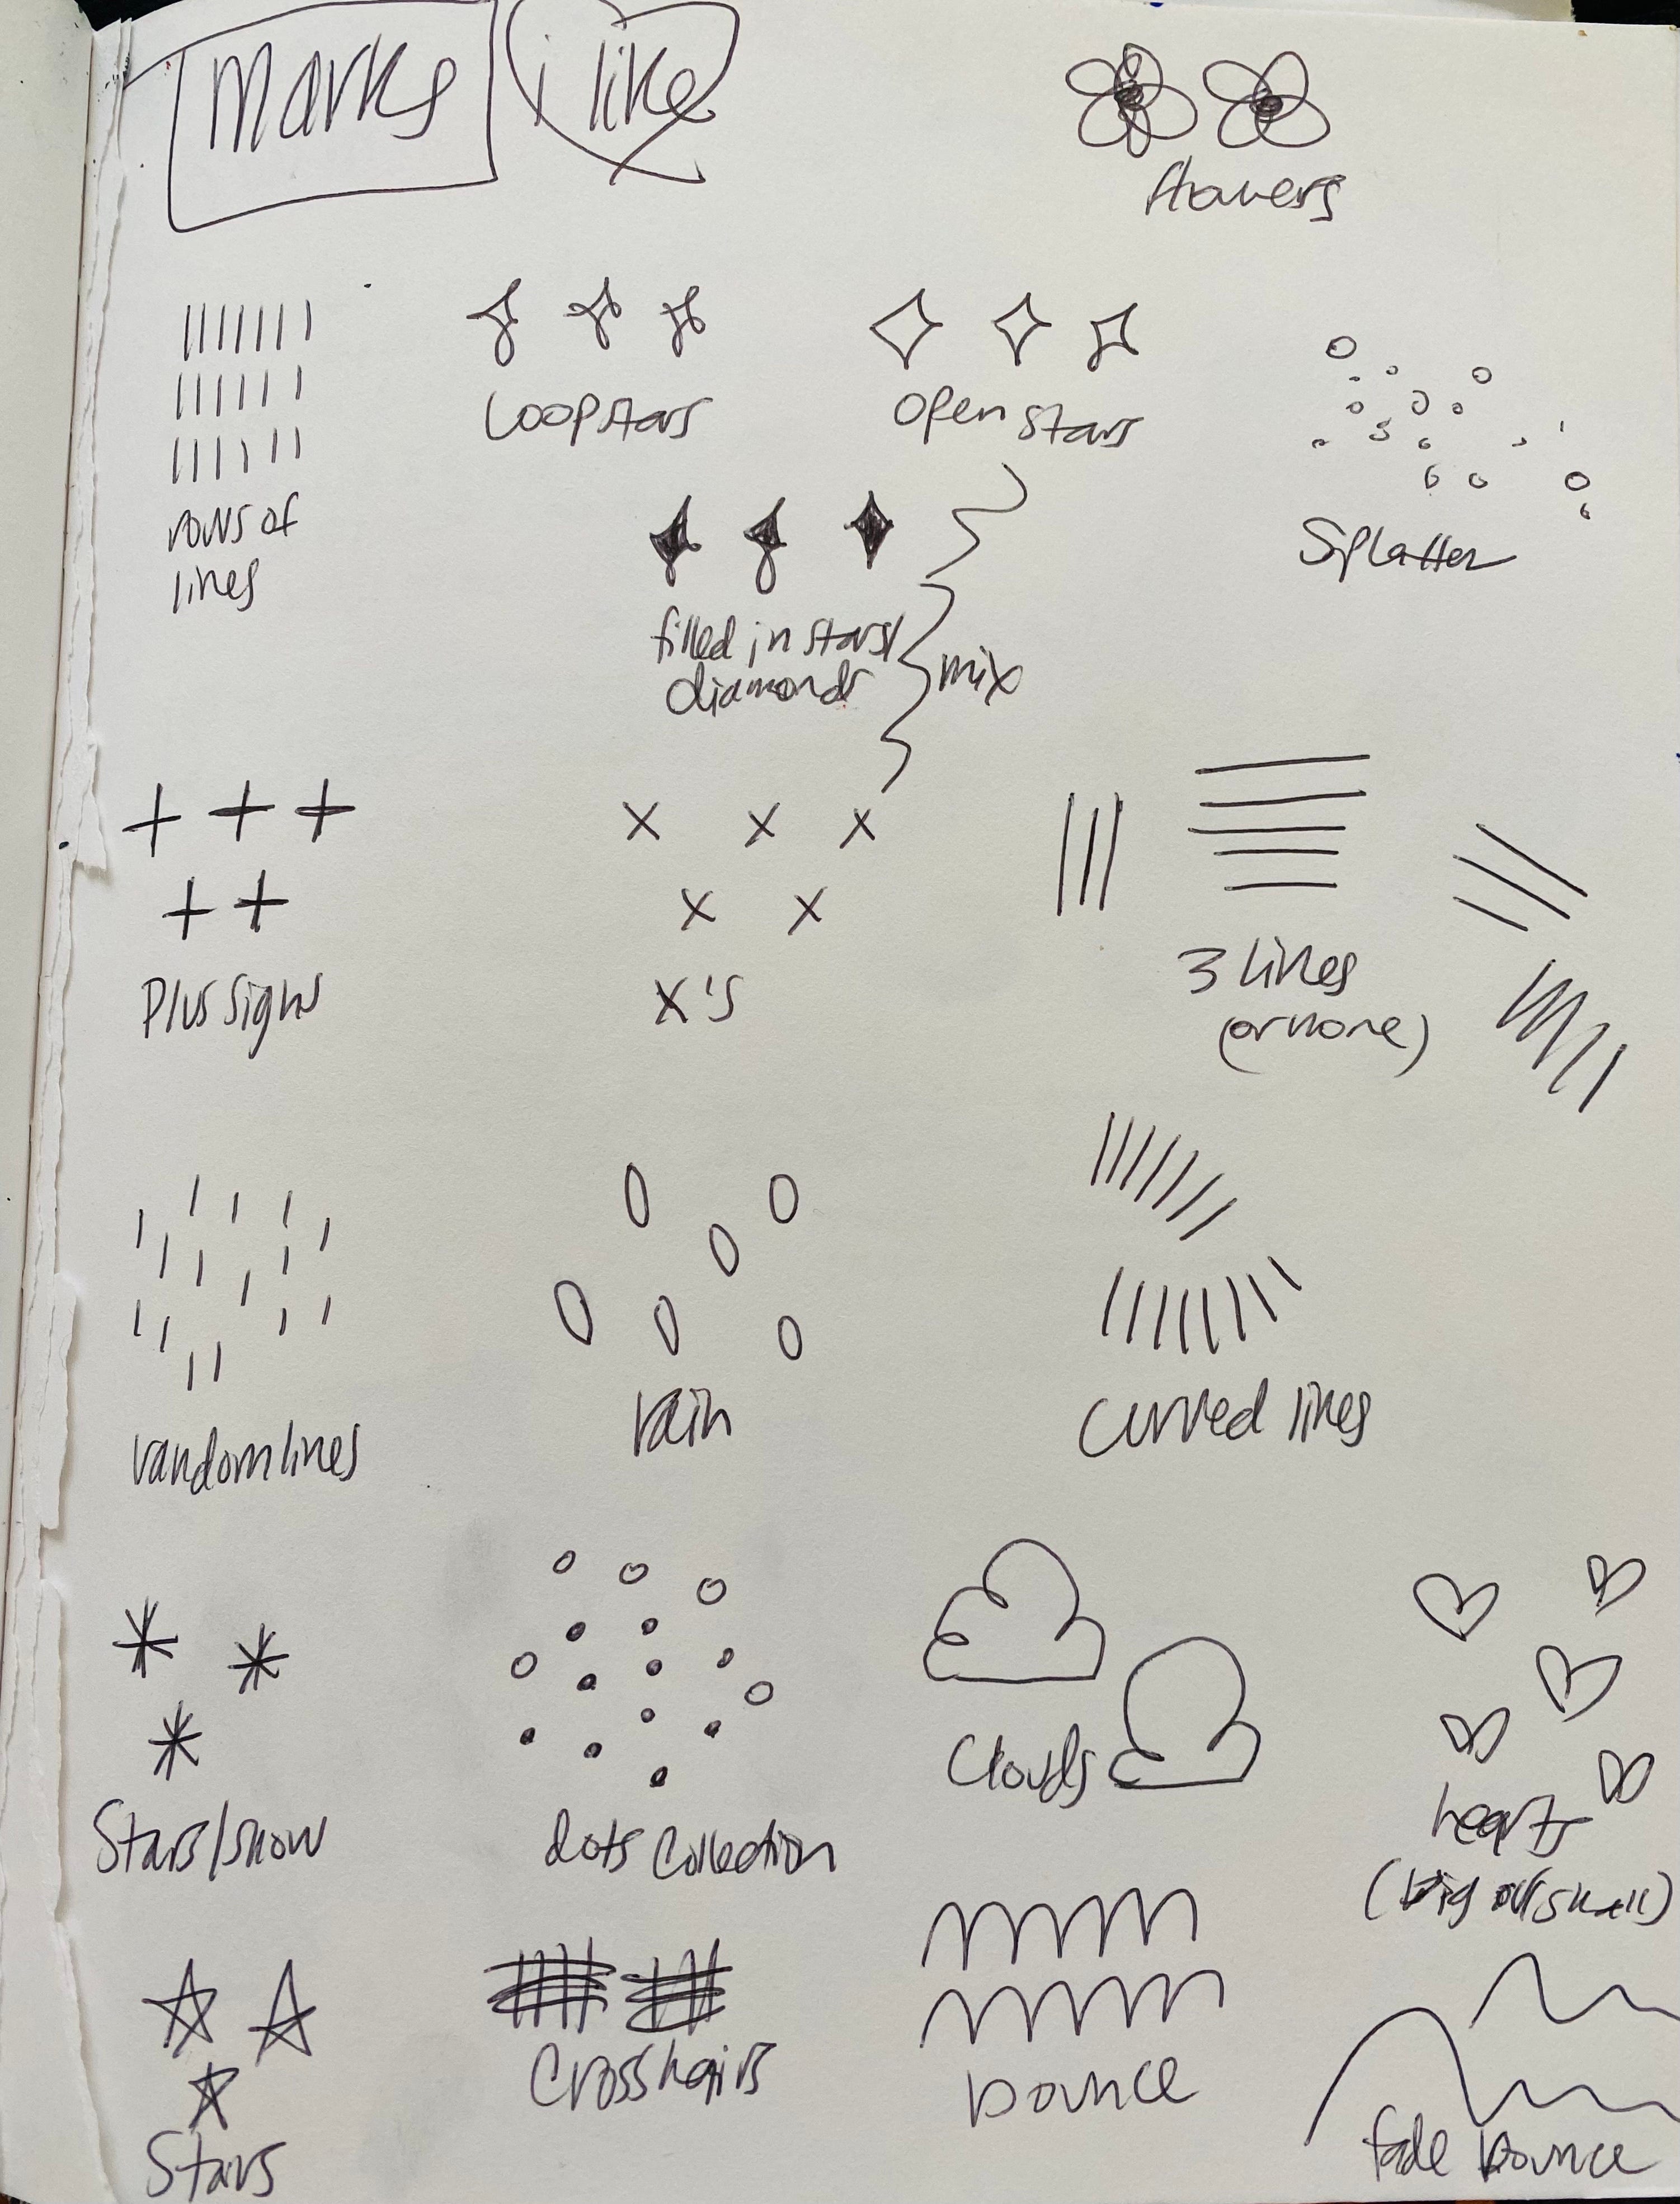 marks i like
flowers
Loop stars
open stars
rows of
lines
Splatter
filled in stars/
diamonds
mix
Plus signs
X's
3 lines
(or none)
random lines
rain
curved lines
Stars/snow
dots collection
Clouds
hearts
(big or/small)
Stars
Crosshairs
bounce
fade bounce